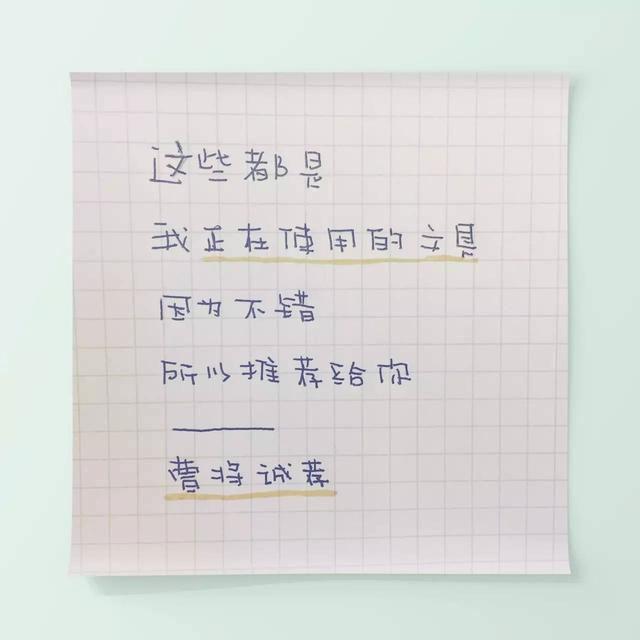 这些都是
我正在使用的文具
因为不错
所以推荐给你
曹将诚荐